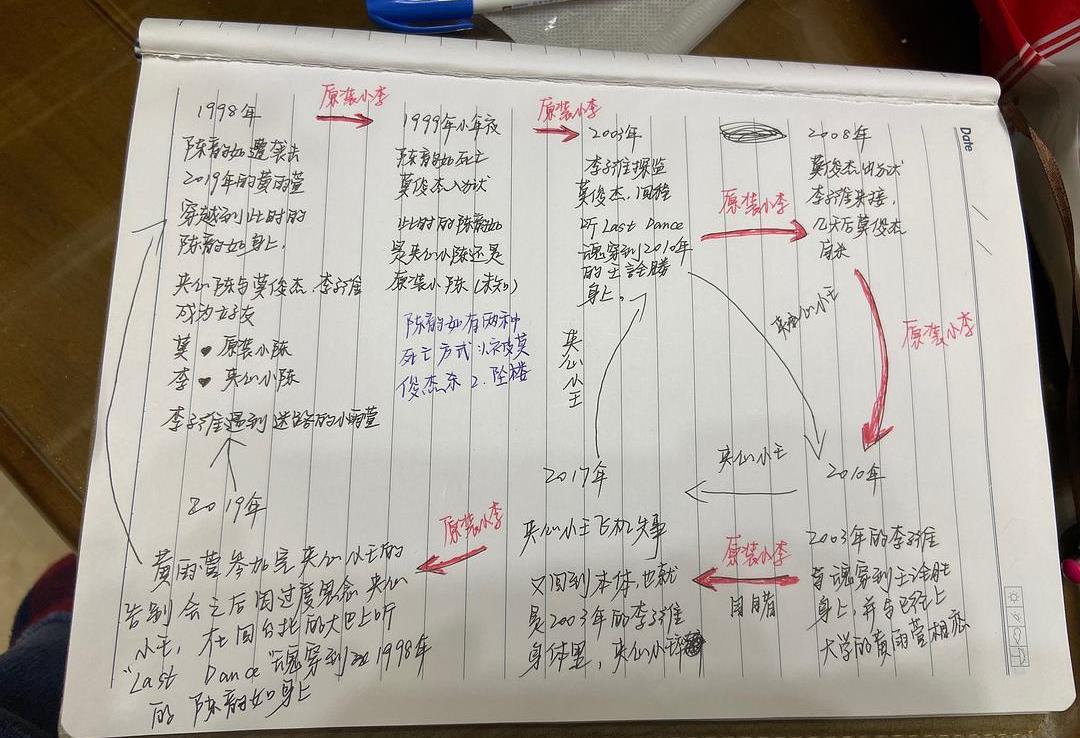 原装小李
1998年
陈韵如遭袭击
2019年的黄雨萱
穿越到此时的
陈韵如身上,
夹心陈与莫俊杰、李子维
成为好友
莫 ♥ 原装小陈
李 ♥ 夹心小陈
李子维遇到迷路的小雨萱
1999年小年夜
陈韵如死亡
莫俊杰入狱
此时的陈韵如
是夹心小陈还是
原装小陈(未知)
陈韵如有两种
死亡方式 1.被莫
俊杰杀 2.坠楼
原装小李
2003年
李子维探监
莫俊杰,回程
听Last Dance
魂穿到2010年
的王詮勝
身上。
夹心小王
原装小李
2008年
莫俊杰出狱
李子维来接,
几天后莫俊杰
自杀
夹心小王
原装小李
2010年
2003年的李子维
魂穿到王诠胜
身上,并与已经上
大学的黄雨萱相恋
夹心小王
原装小李
目睹
2017年
夹心小王飞机失事
又回到本体,也就
是2003年的李子维
身体里,夹心小王
原装小李
2019年
黄雨萱参加完夹心小王的
告别会之后因过度思念夹心
小王,在回台北的大巴上听
"Last Dance"魂穿到1998年
的陈韵如身上
Date